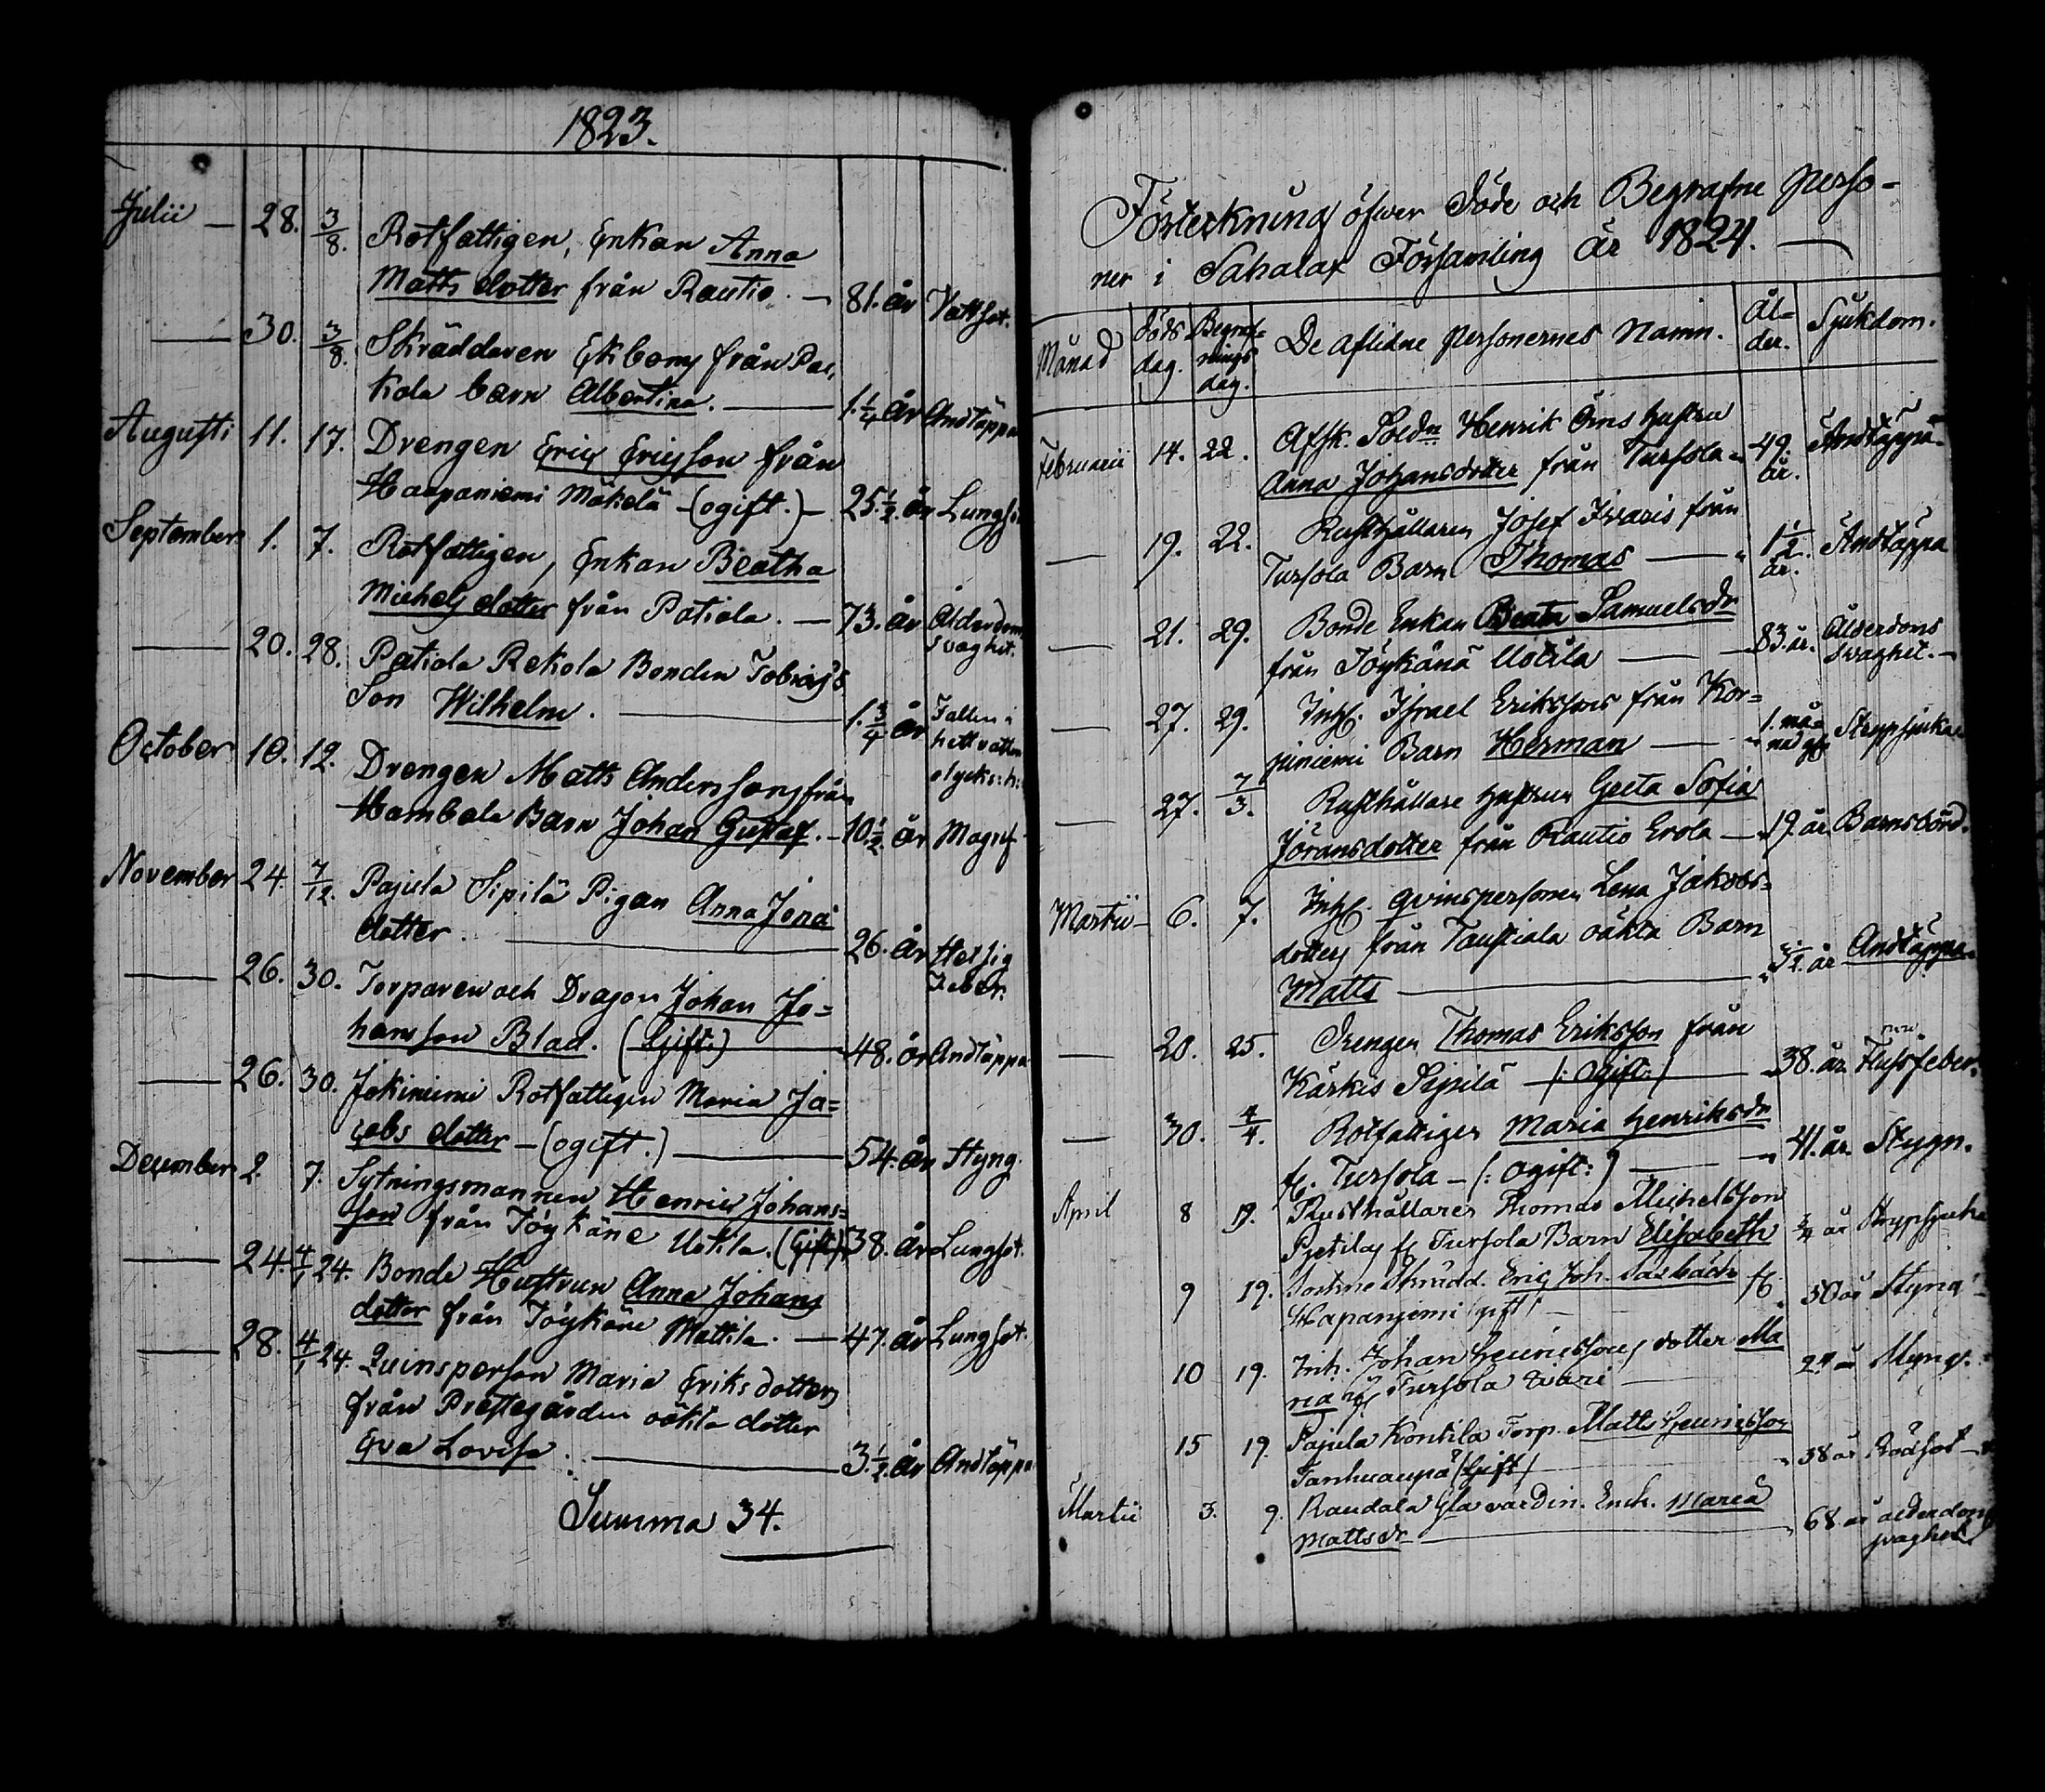 1823.
Julii — 28. 3/8. Rotfattigen, Enkan Anna
Matts dotter från Rautio. — 81. år Vattsot.
— 30. 3/8. Skräddaren Ekbom från Pac,
kola barn Albertina. — 1. 1/4 år Andtäppa
Augusti 11. 17. Drengen Eric Ericsson från
Haapaniemi Mäkelä - (ogift.) — 25. 1/2. år Lungso
September 1. 7. Rotfattigen, Enkan Beatha
Michels dotter från Patiala. — 73. år Ålderdoms
svaghet.
— 20. 28. Patiala Rekola Bonden Tobias's
Son Wilhelm. — 1. 3/4 år Fallen i
hett vatten
olycks:h:
October 10. 12. Drengen Matts Anderssons från
Hambala Barn Johan Gustaf. - 10. 1/2 år Magref
November 24. 7/12. Pajula Sipilä Pigan Anna Jona
dotter. — 26. år Hetsig
Feber.
— 26. 30. Torparen och Dragon Johan Jo=
hansson Blad. (Gift.) — 48. år Andtäppa
— 26. 30. Jokiniemi Rotfattigen Maria Ja=
cobs dotter - (ogift.) — 54. år Styng.
December 2. 7. Sytningsmannen Henric Johans=
son från Jöykäne Uotila. (Gift) 38. år Lungsot.
— 24. 4/1 24. Bonde Hustrun Anna Johans
dotter från Jöykäne Mattila. — 47. år Lungsot.
— 28. 4/1 24. Quinsperson Maria Eriks dotters
från Prestegården oäkta dotter
Eva Lovisa. — 3. 1/2. år Andtäppa
Summa 34.
Förteckning öfwer Döde och Begrafne Perso-
ner i Sahalax Församling År 1824. —
Månad Döds dag. Begraf- nings dag. De aflidne Personernes Namn. Ål- der. Sjukdom.
Februarii 14. 22. Afsk. Soldn Henrik Örns hustru
Anna Johansdotter från Tursola 49. år. Andtäppa.
— 19. 22. Rusthållaren Josef Iwaris från
Tursola Barn Thomas — 1 1/2. år. Andtäppa
— 21. 29. Bonde Enkan Beata Samuelsdr
från Jöykänä Uotila — 83. år. Ålderdoms
svaghet. -
— 27. 29. Inh. Israel Erikssons från Kor=
piniemi Barn Herman — 1. må= nad Strypsjuka
— 27. 7/3. Rusthållare hustrun Greta Sofia
Jöransdotter från Rautio Erola — 19. år. Barnsbörd.
Martii - 6. 7. Inh. qvinspersonen Lena Jakobs=
dotters från Taustiala oäkta Barn
Matts — 1/2. år Andtäppa.
— 20. 25. Drengen Thomas Eriksson från
Kärkis Sipilä (: Ogift :) — 38. år. Flussfeber.
— 30. 4/4. Rotfattigen Maria Henriksdr
fr. Tursola - (: ogift :) — 41. år. Stygn.
April 8 19. Rusthållaren Thomas Michelsson
fr. Tursola Barn Elisabeth 3/4 år Strypsjuka
9 19. Skrädd. Eric Joh. fr.
Haapaniemi (gift) — 50 år Styng
10 19. Inh. Johan Henricssons dotter Ma
ria fr. Tursola Iwari — år Styng.
15 19. Pajula Konkila Torp. Matts Henricsson
(Gift) — 38 år Rödsot
Martii 3. 9. Raudala Enk. Maria
Mattsdr — 68. år ålderdoms
svaghet